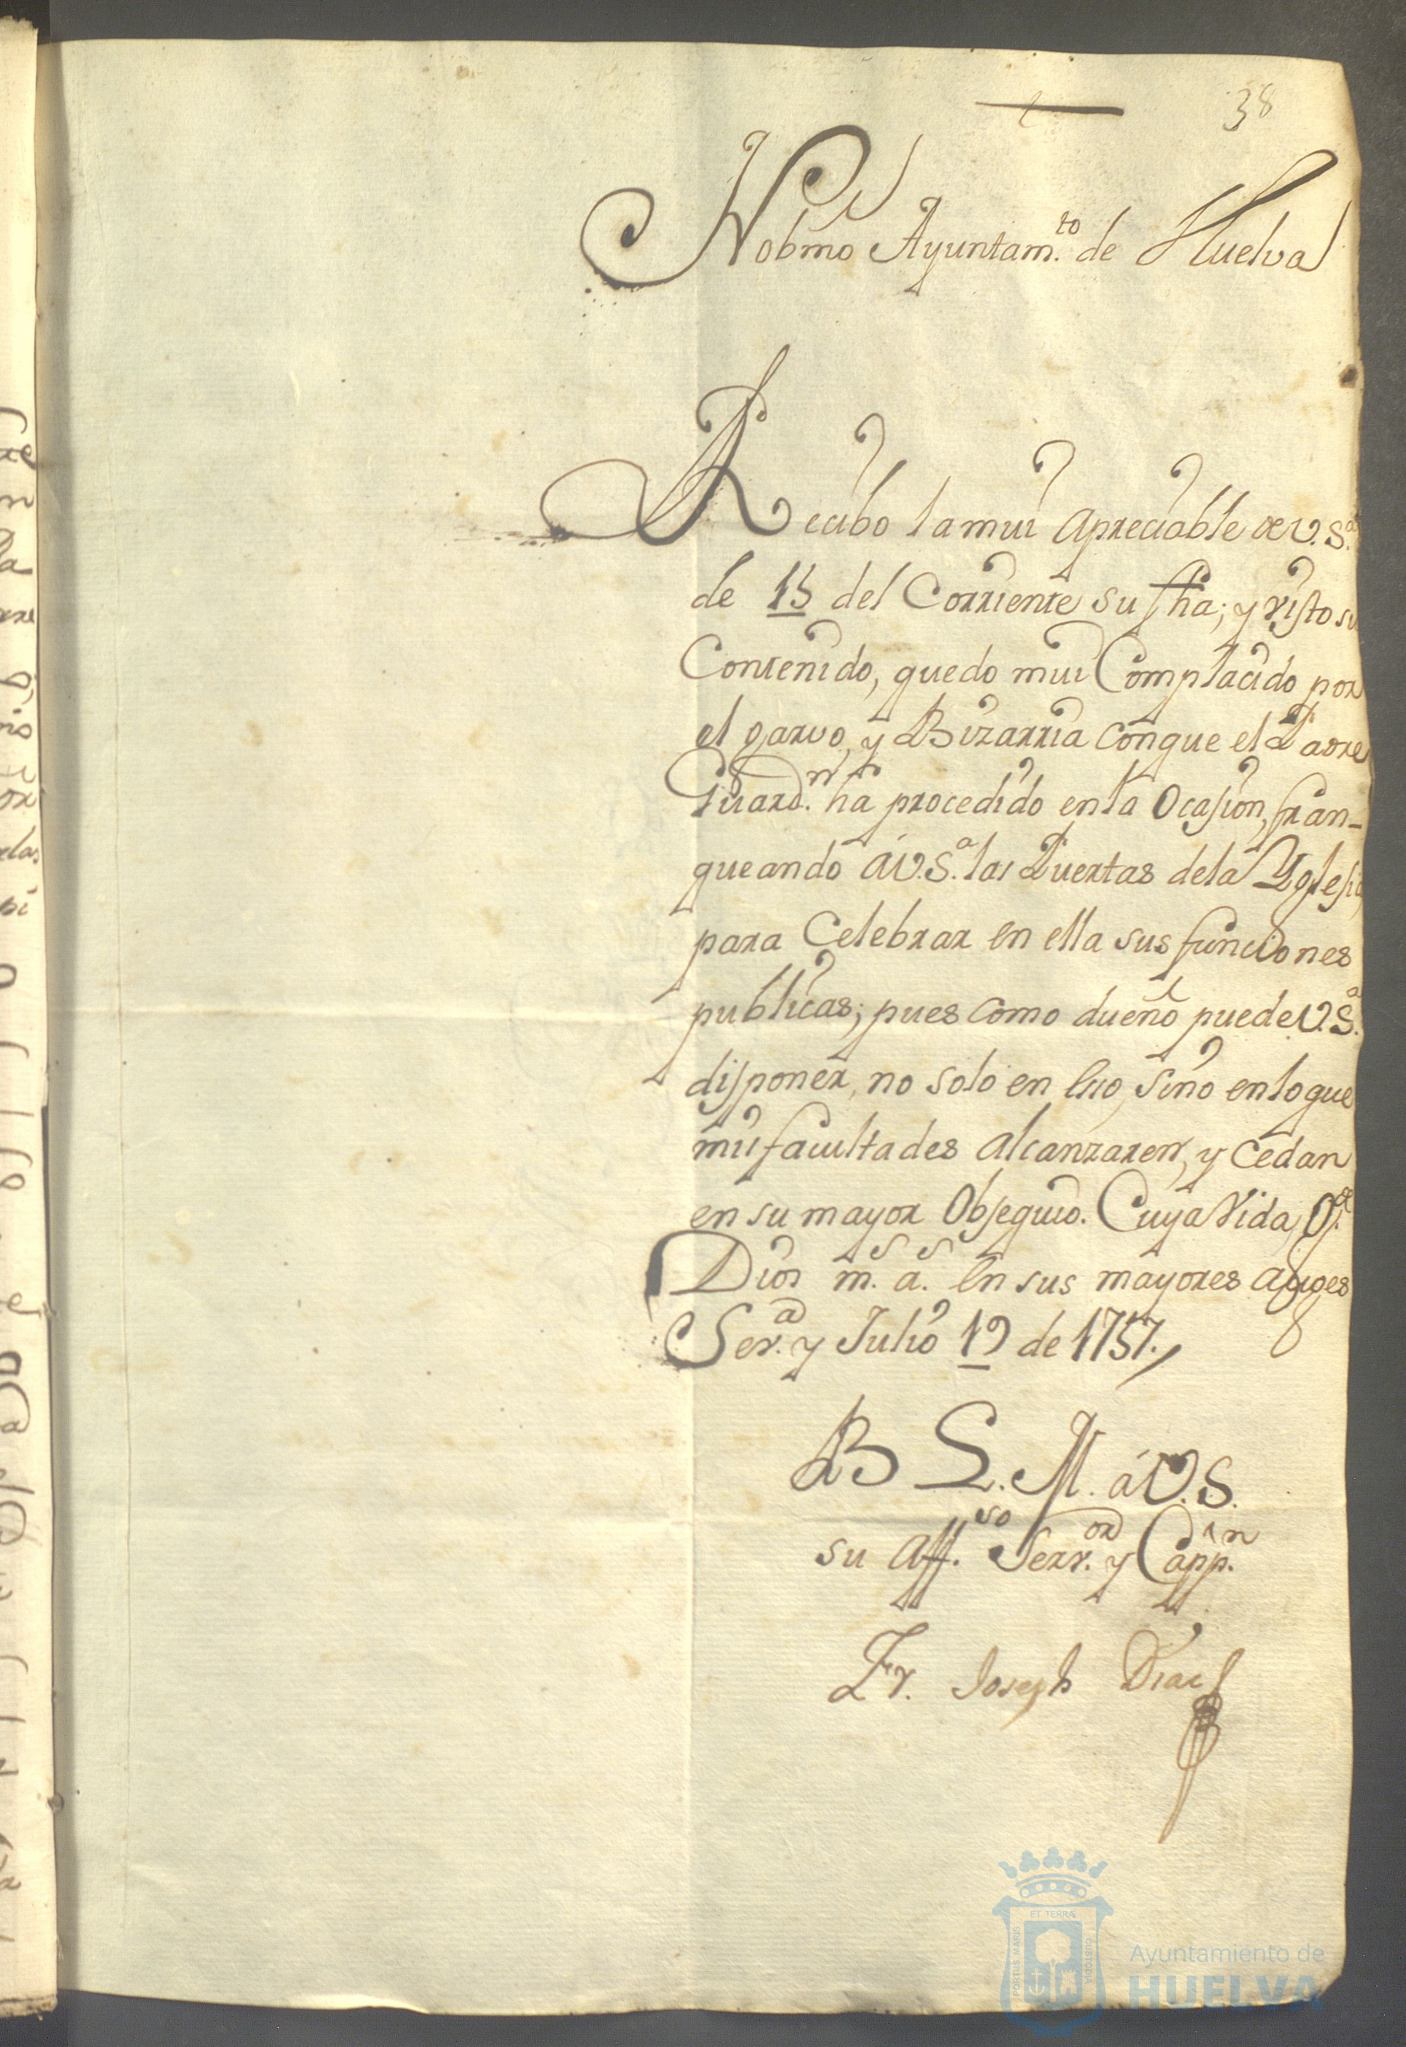 38
Nobmo Ayuntam.to de Huelva
Recibo la mui apreciable de V.Sa.
de 15 del Corriente su fha; y visto su
Contenido, quedo mui Complacido por
el garvo, y Bizarria con que el Padre
Guard.n ha procedido en la Ocasion, fran-
queando á V.Sa. las Puertas de la Yglesia,
para Celebrar en ella sus funciones
publicas; pues como dueño puede V.Sa.
disponer, no solo en eso, sino en lo que
mis facultades alcanzaren, y cedan
en su mayor Obsequio. Cuya Vida
Dios m.s a.s en sus mayores auges
Sev.a y Julio 19 de 1757.
B L. M. á V.S.
su Aff.so Serv.or y Capp.n
Fr. Joseph Diaz
PORTUS MARIS ET TERRAE CUSTODIA
Ayuntamiento de
HUELVA